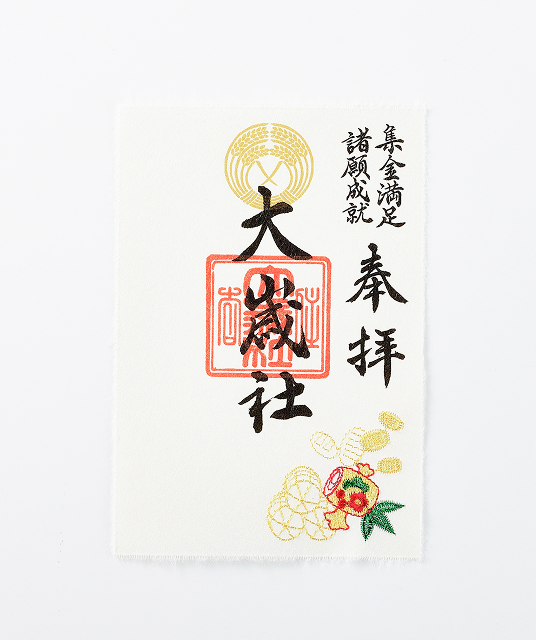 集金満足
諸願成就
奉拝
大歳社